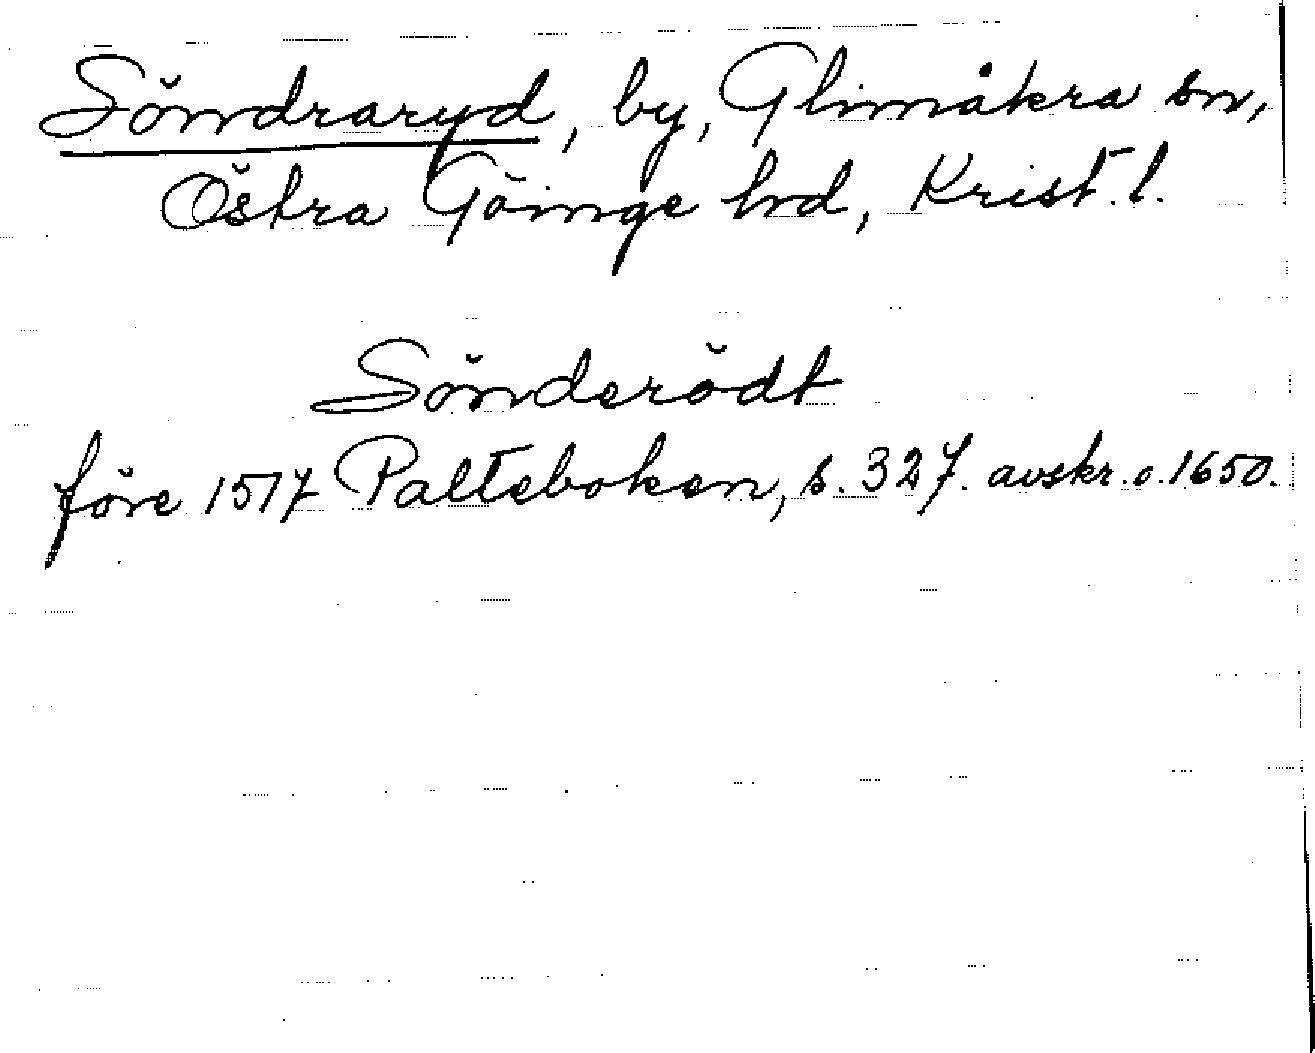 Söndraryd, by, Glimåkra sn,
Östra Göinge hd, Krist. l.
Sönderödt
före 1517 Palteboken, s. 327. avskr. o. 1650.